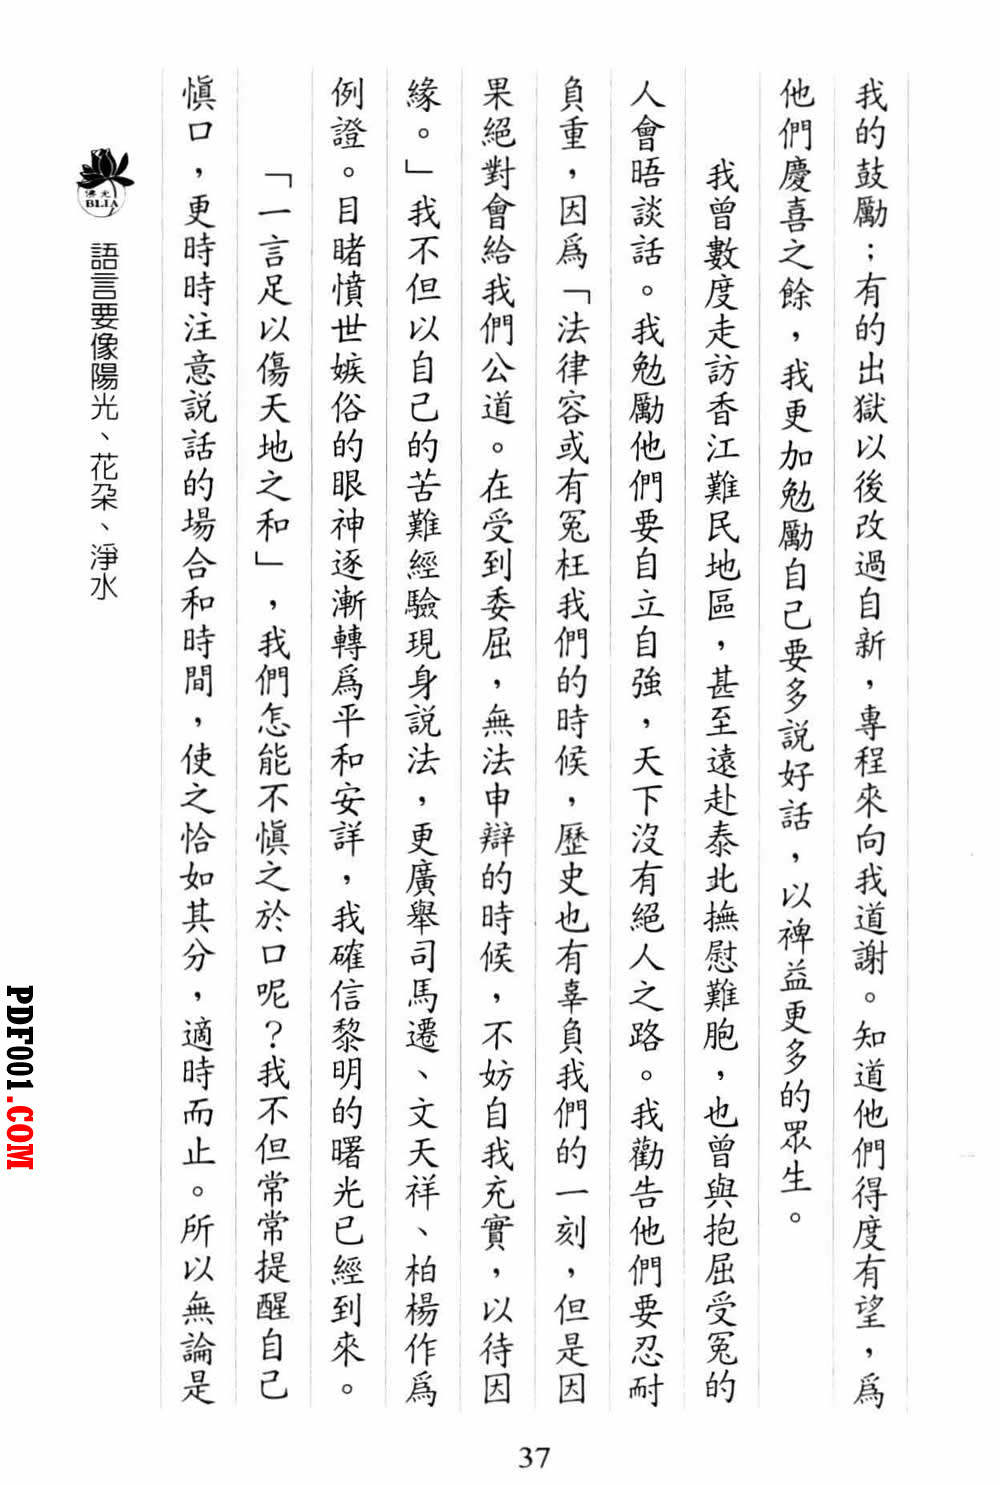 我的鼓勵；有的出獄以後改過自新，專程來向我道謝。知道他們得度有望，爲
他們慶喜之餘，我更加勉勵自己要多說好話，以裨益更多的眾生。
我曾數度走訪香江難民地區，甚至遠赴泰北撫慰難胞，也曾與抱屈受冤的
人會晤談話。我勉勵他們要自立自強，天下沒有絕人之路。我勸告他們要忍耐
負重，因爲「法律容或有冤枉我們的時候，歷史也有辜負我們的一刻，但是因
果絕對會給我們公道。在受到委屈，無法申辯的時候，不妨自我充實，以待因
緣。」我不但以自己的苦難經驗現身說法，更廣舉司馬遷、文天祥、柏楊作爲
例證。目睹憤世嫉俗的眼神逐漸轉爲平和安詳，我確信黎明的曙光已經到來。
「一言足以傷天地之和」，我們怎能不慎之於口呢？我不但常常提醒自己
慎口，更時時注意說話的場合和時間，使之恰如其分，適時而止。所以無論是
佛光
BLIA
語言要像陽光、花朵、淨水
37
PDF001.COM